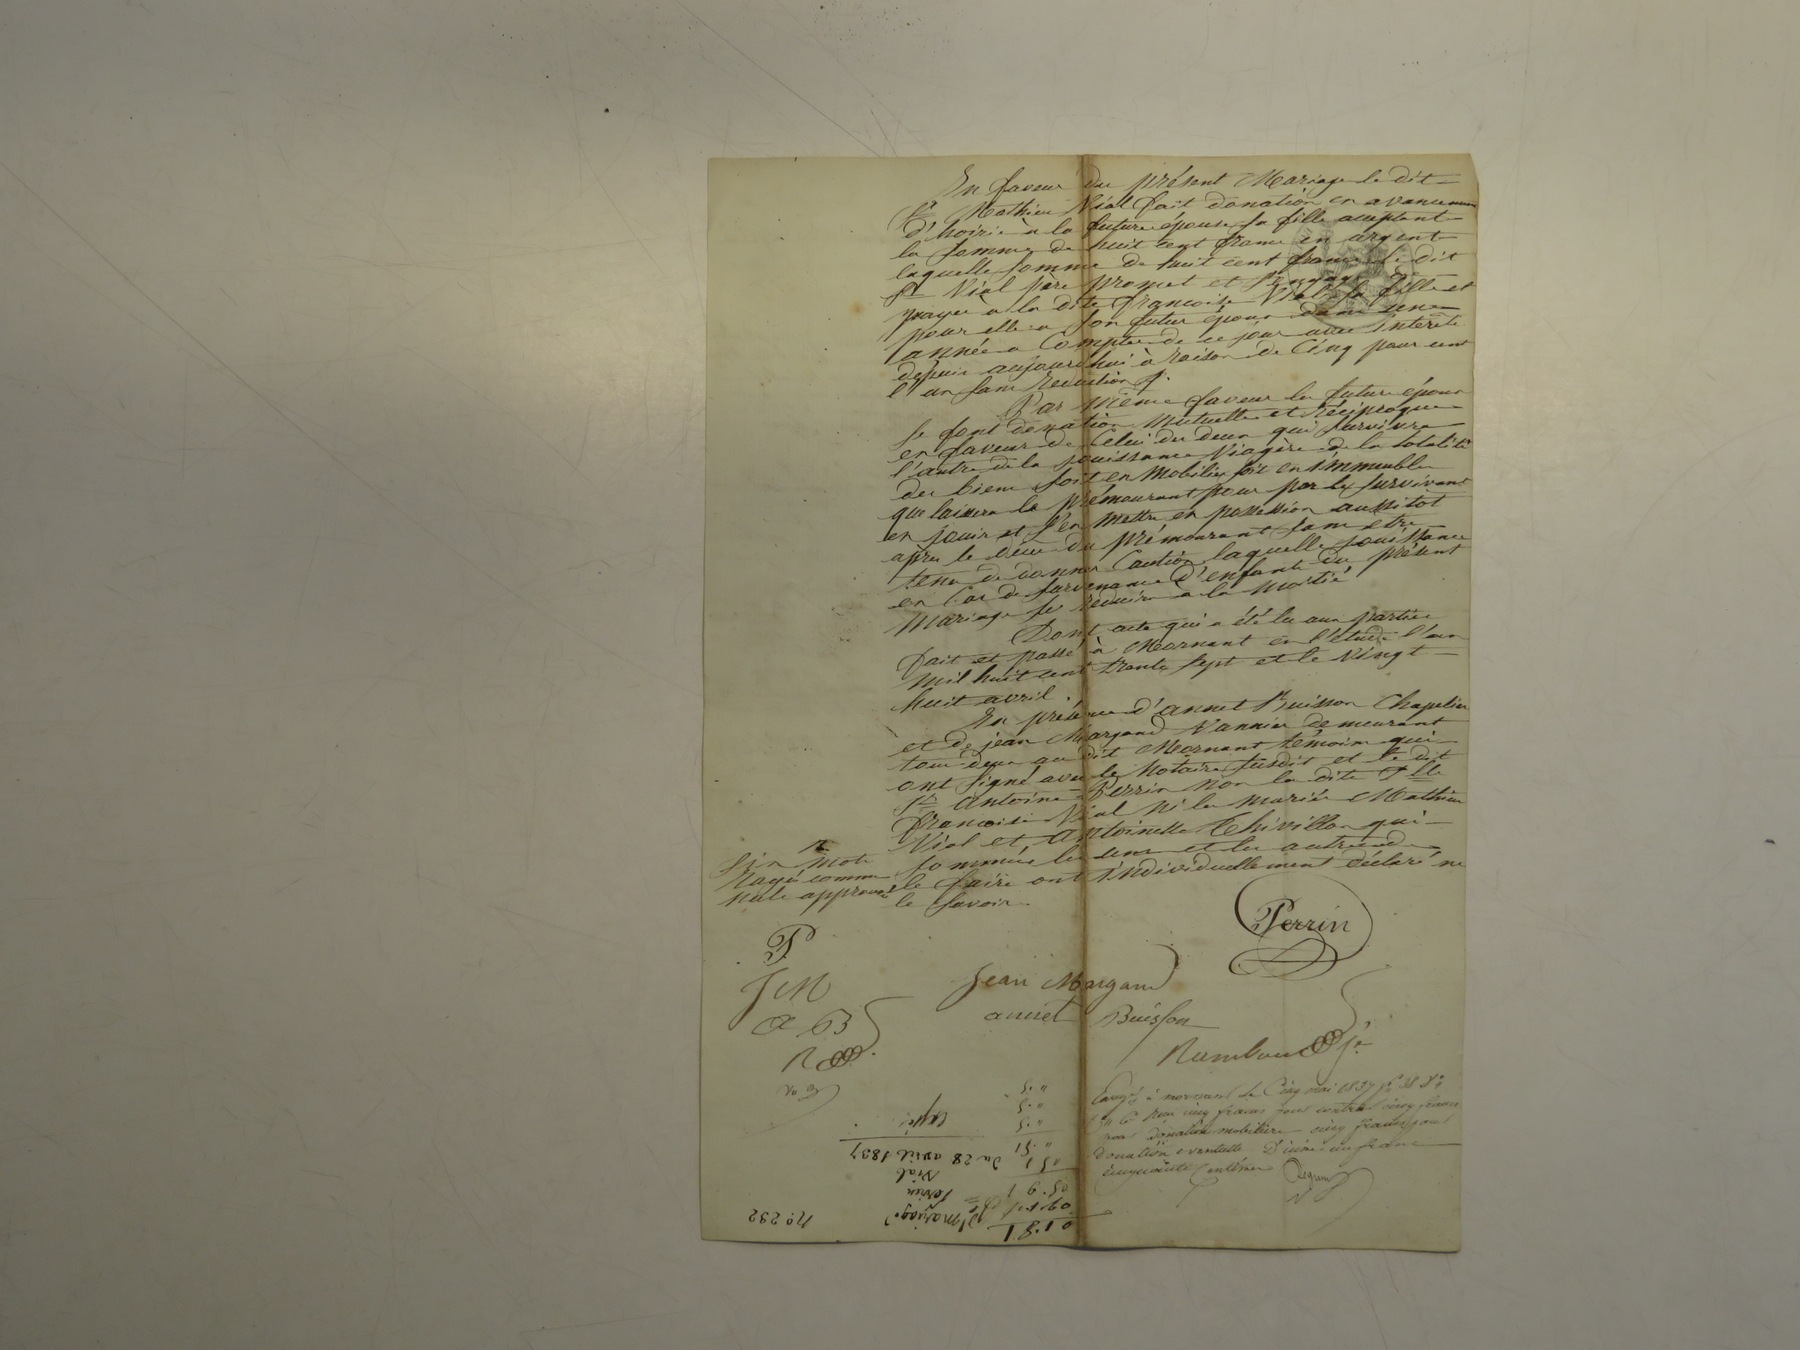 En faveur du présent Mariage le dit
Sr Mathieu Vial fait donation en avancement
d'hoirie à la future épouse sa fille acceptant
la somme de huit cent franc en argent
laquelle somme de huit cent franc le dit
Sr Vial père promet et s'engage de
payer à la dite francoise Vial sa fille et
pour elle a son futur époux dans une
année a Compter de ce jour avec intérêts
depuis aujourdhui à raison de Cinq pour cent
l'an sans Retention
Par même faveur les futurs époux
se font donation Mutuelle et réciproque
en faveur de Celui des deux qui survivra
l'autre de la jouissance Viagère de la totalité
des biens soit en Mobilier soit en immeubles
que laissera le prémourant pour par le survivant
en jouir et s'en mettre en possession aussitot
après le décès du prémourant sans etre
tenu de donner Caution laquelle jouissance
en Cas de survenance d'enfants du présent
Mariage se réduira a la moitié
Dont acte qui a été lu aux parties
fait et passé à Mornant en l'étude l'an
mil huit cent trente sept et le vingt
huit avril.
En présence d'annet Buisson Chapelier
et de jean Margand Vannier demeurant
tous deux au dit Mornant témoins qui
ont signé avec le Notaire susdit et le dit
Sr Antoine Perrin Non la dite Dlle
francoise Vial Ni les mariés Mathieu
Vial et Antoinette Thivillon qui
sommés les uns et les autres de
le faire ont individuellement déclaré ne
le savoir
mots
Rayé comme
nuls approuvé
Perrin
P
JM
Jean Margand
a B
annet Buisson
R
Enregé à mornant le Cinq mai 1837 fo 38
Reçu cinq francs pour contrat cinq francs
pour donation mobilière cinq francs pour
donation éventuelle Décime un franc
cinquante Centimes
du 28 avril 1837
Vial
Perrin
Mariage
No. 232